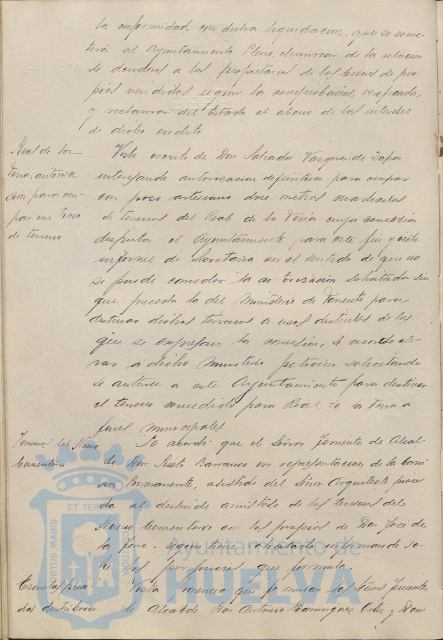 la conformidad con dicha liquidacion, que se some-
terá al Ayuntamiento Pleno, eliminar de la relacion
de deudores a los propietarios de los bienes de pro-
pios vendidos segun la
y reclamar del Estado el abono de los intereses
de dicho credito
Real de la
Feria autoriza
cion para ocu-
par un trozo
de terreno
Visto escrito de Don Salvador Vazquez de Zafra
interesando autorizacion definitiva para ocupar
con pozo artesiano doce metros cuadrados
de terrenos del Real de la Feria cuya concesion
disfruta el Ayuntamiento para este fin y visto
informe de Secretaria en el sentido de que no
se puede conceder la autorizacion solicitada sin
que preceda la del Ministerio de Fomento para
destinar dichos terrenos a usos distintos de los
que se expresan la concesion, se acordo ele-
var a dicho Ministerio peticion solicitando
se autorice a este Ayuntamiento para destinar
el terreno concedido para Real de la Feria a
fines municipales
Terrenos del Nuevo
Cementerio
Se acordó que el Señor Teniente de Alcal-
de Don Sixto Barranco en representacion de la Comi-
sion Permanente, asistido del Señor Arquitecto proce-
da al deslinde amistoso de los terrenos del
Nuevo Cementerio con los propios de Don Jose de
la Torre, segun tiene solicitado informando so-
bre los pormenores que formula
Escuelas
dos distribucion
Vista mocion que formulan los Sres Tenientes
de Alcalde Don Antonio Dominguez y Don
ET TERRAE
PORTUS MARIS
Ayuntamiento de
HUELVA